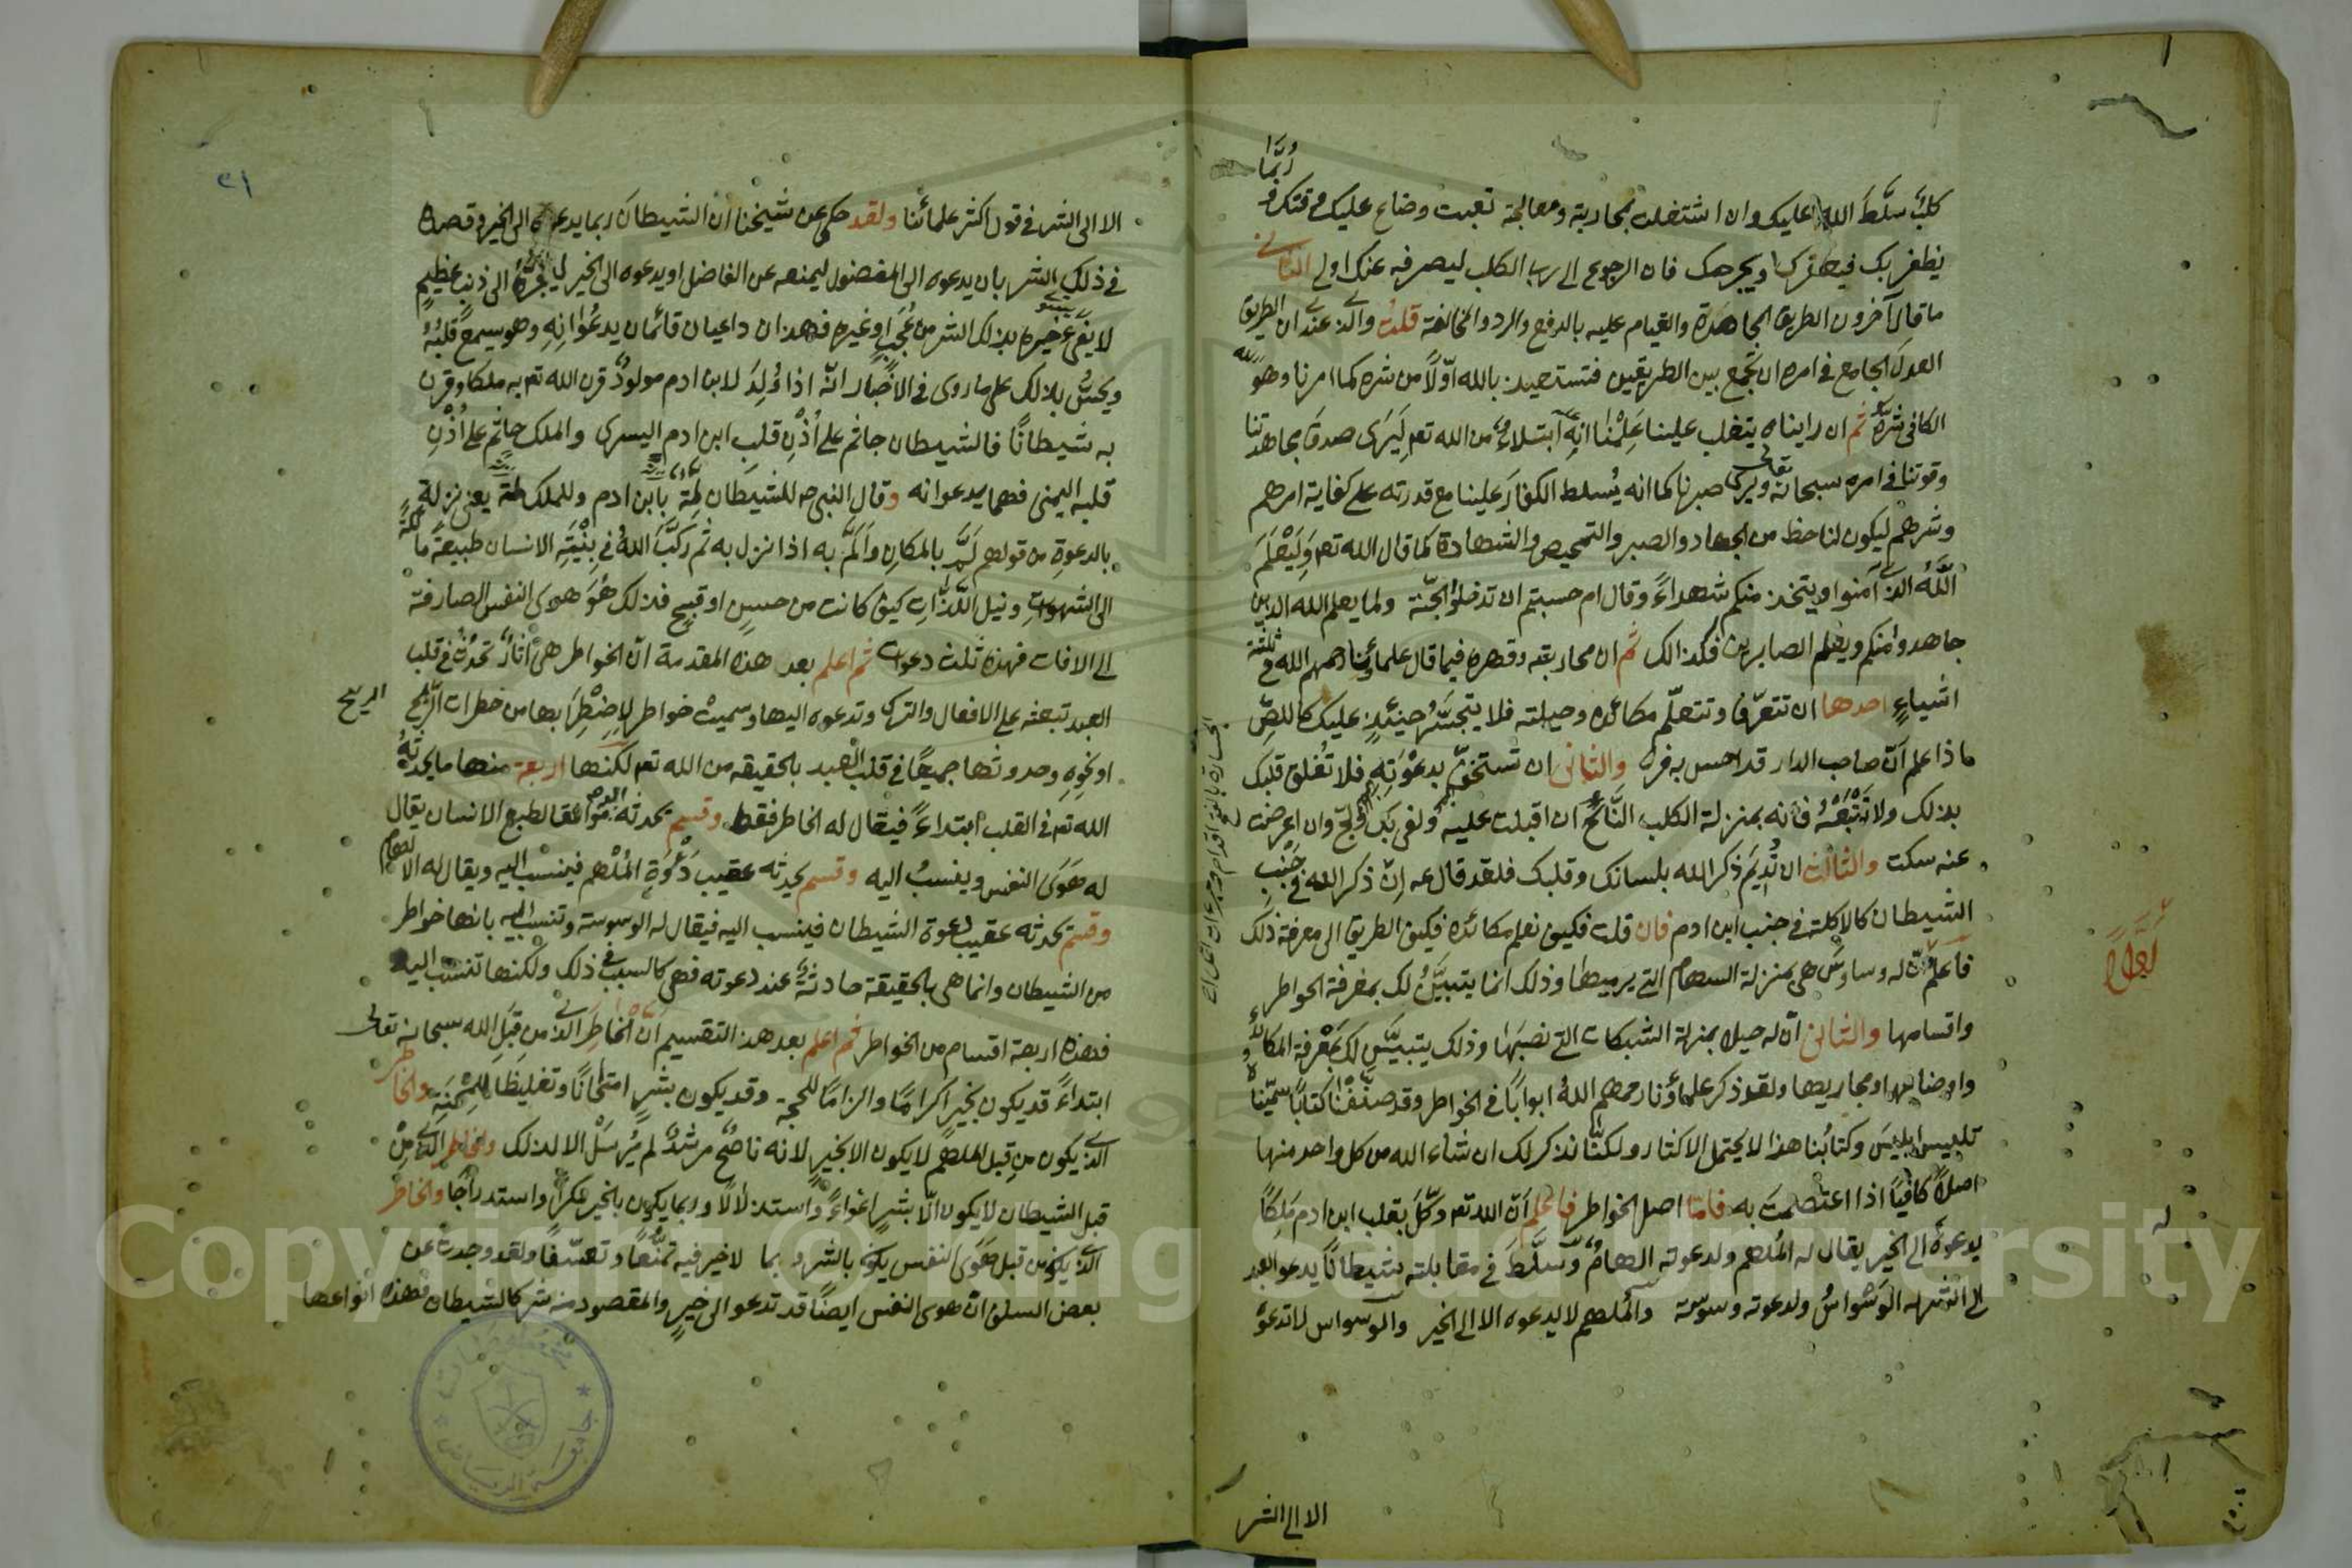 ربما
كلب سلط الله عليك وان اشتغلت بمحاربة ومعالجة تعبت وضاع عليك وقتك و
يظفر بك فيعقرك ويجرحك فان الرجوع الى رب الكلب ليصرفه عنك اولى الثاني
ما قال آخرون الطريق المجاهدة والقيام عليه بالدفع والرد والمخالفة قلت والذي عندي ان الطريق
العدل الجامع في امره ان تجمع بين الطريقين فتستعيذ بالله اولا من شره كما امرنا وهو
الكافي شره ثم ان رايناه يتغلب علينا علمنا انه ابتلاء من الله تعه ليرى صدق مجاهدتنا
وقوتنا في امره سبحانه وتعالى ويرى صبرنا كما انه يسلط الكفار علينا مع قدرته على كفاية امرهم
وشرهم ليكون لنا حظ من الجهاد والصبر والتمحيص والشهادة كما قال الله تعه وليعلم
الله الذين آمنوا ويتخذ منكم شهداء وقال ام حسبتم ان تدخلوا الجنة ولما يعلم الله الذين
جاهدوا منكم ويعلم الصابرين فكذالك ثم ان محاربته وقهره فيما قال علماؤنا رحمهم الله في ثلثة
اشياء احدها ان تتعرف وتتعلم مكائده وحيلته فلا يتجسر حينئذ عليك كاللص
ماذا علم ان صاحب الدار قد احس به فر والثاني ان تستخف بدعوته فلا تعلق قلبك
بذلك ولا تتبعه فانه بمنزلة الكلب النابح ان اقبلت عليه ولغ بك ولج وان اعرضت
عنه سكت والثالث ان تديم ذكر الله بلسانك وقلبك فلقد قال عه ان ذكر الله في جنب
الشيطان كالاكلة في جنب ابن ادم فان قلت فكيف نعلم مكائده فكيف الطريق الى معرفة ذلك
فاعلم ان له وساوس هي بمنزلة السهام التي يرميها وذلك انما يتبين لك بمعرفة الخواطر
واقسامها والثاني ان له حيلا بمنزلة الشبكات التي نصبها وذلك يتبين لك بمعرفة المكائد
واوضاعها ومجاريها ولقد ذكر علماؤنا رحمهم الله ابوابا في الخواطر وقد صنفنا كتابا سميناه
تلبيس ابليس وكتابنا هذا لا يحتمل الاكثار ولكنا نذكر لك ان شاء الله من كل واحد منها
اصلا كافيا اذا اعتصمت به فاما اصل الخواطر فاعلم ان الله تعه وكل بقلب ابن ادم ملكا
يدعوه الى الخير يقال له الملهم ولدعوته الهام وسلط في مقابلته شيطانا يدعو العبد
الى الشر له الوسواس ولدعوته وسوسة والملهم لا يدعوه الا الى الخير والوسواس لا تدعو
له
الا الى الشر
الا الى الشر في قول اكثر علمائنا ولقد حكي عن شيخنا ان الشيطان ربما يدعوه الى الخير وقصده
في ذلك الشر بان يدعوه الى المفضول ليمنعه عن الفاضل او يدعوه الى الخير ليجره الى ذنب عظيم
لا يفي خيره بذلك الشر من عجب او غيره فهذان داعيان قائمان يدعوانه وهو يسمع قلبه
ويحس بذلك على ما روي في الاخبار انه اذا ولد لابن ادم مولود قرن الله تعه به ملكا وقرن
به شيطانا فالشيطان جاثم على اذن قلب ابن ادم اليسرى والملك جاثم على اذن
قلبه اليمنى فهما يدعوانه وقال النبي عه للشيطان لمة بابن ادم وللملك لمة يعني نزلة
بالدعوة من قولهم لم بالمكان والم به اذا نزل به ثم ركب الله في بنية الانسان طبيعة مائلة
الى الشهوات ونيل اللذات كيف كانت من حسن او قبيح فذلك هو هوى النفس الصارفة
الى الافات فهذه ثلث دعوات ثم اعلم بعد هذه المقدمة ان الخواطر هي آثار تحدث في قلب
العبد تبعثه على الافعال والترك وتدعوه اليها وسميت خواطر لاضطرابها من خطرات الريح
الريح
او نحوه وحدوثها جميعا في قلب العبد بالحقيقه من الله تعه لكنها اربعة منها ما يحدثه
الله تعه في القلب ابتداء فيقال له الخاطر فقط وقسم يحدثه موافقا لطبع الانسان يقال
له هوى النفس وينسب اليه وقسم يحدثه عقيب دعوة الملهم فينسب اليه ويقال له الالهام
وقسم يحدثه عقيب دعوة الشيطان فينسب اليه فيقال له الوسوسة وتنسب اليه بانها خواطر
من الشيطان وانما هي بالحقيقة حادثة عند دعوته فهي كالسبب في ذلك ولكنها تنسب اليه
فهذه اربعة اقسام من الخواطر ثم اعلم بعد هذا التقسيم ان الخاطر الذي من قبل الله سبحانه تعالى
ابتداء قد يكون بخير اكراما والزاما للحجة وقد يكون بشر امتحانا وتغليظا للمحنة والخاطر
الذي يكون من قبل الملهم لا يكون الا بخير لانه ناصح مرشد لم يرسل الا لذلك والخاطر الذي من
قبل الشيطان لا يكون الا بشر اغواء واستذلالا وربما يكون بالخير مكرا واستدراجا والخاطر
الذي يكون من قبل هوى النفس يكون بالشر وبما لا خير فيه تمنعا وتعسفا ولقد وجدت عن
بعض السلف ان هوى النفس ايضا قد تدعو الى خير والمقصود منه شر كالشيطان فهذه انواعها
جامعة الرياض
Copyright © King Saud University